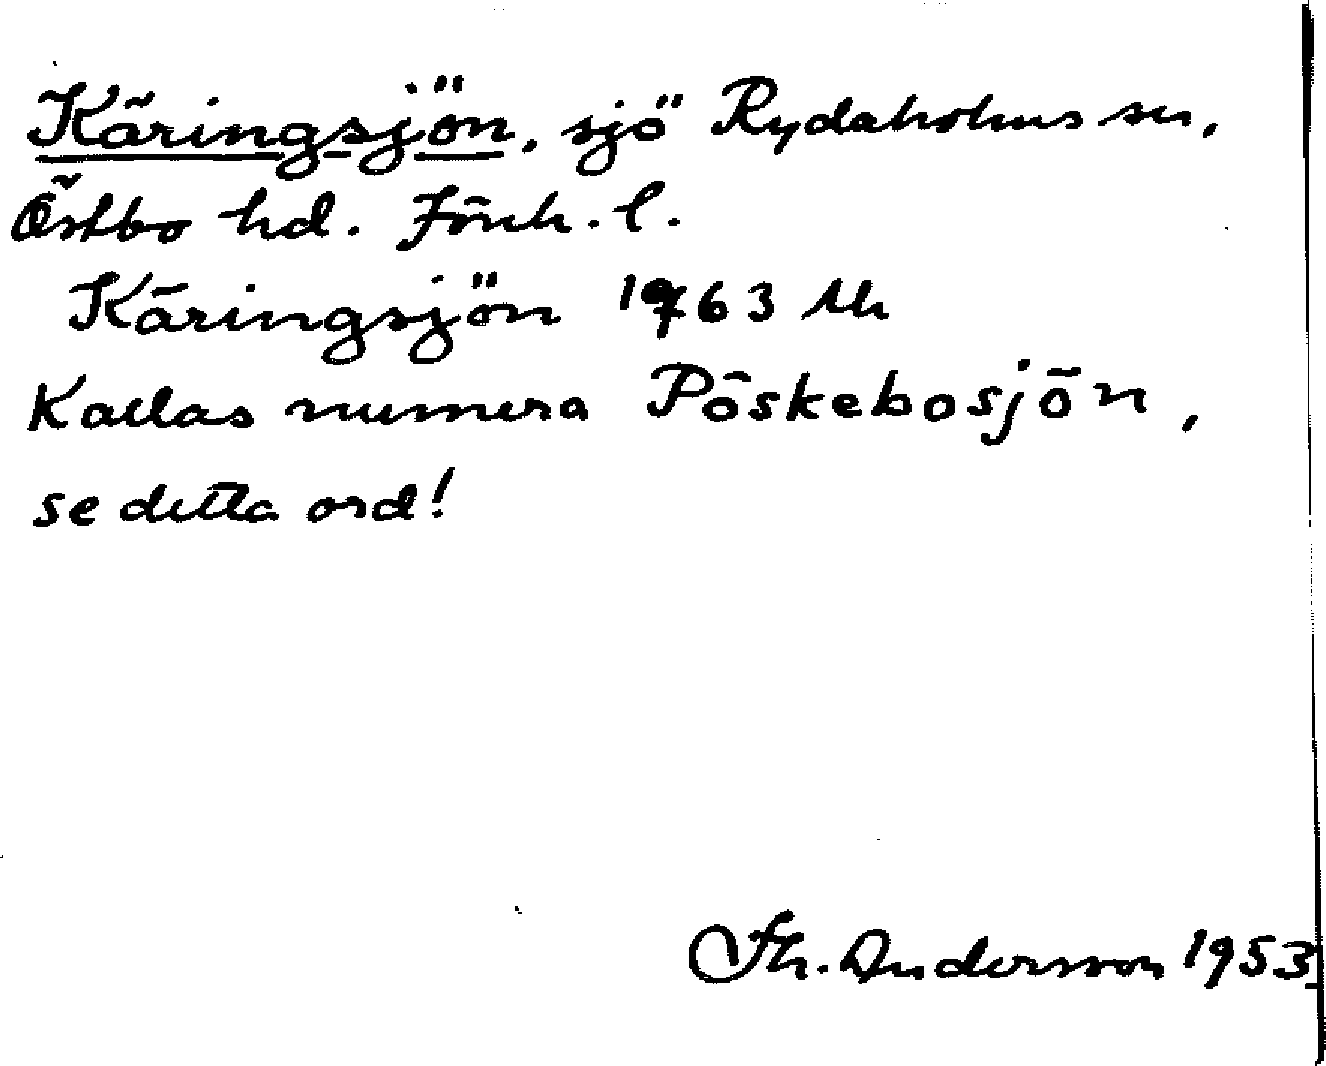 Käringsjön, sjö Rydaholms sn,
Östbo hd. Jönk. l.
Käringsjön 1763 Uh
Kallas numera Pöskebosjön,
se detta ord!
Th. Andersson 1953